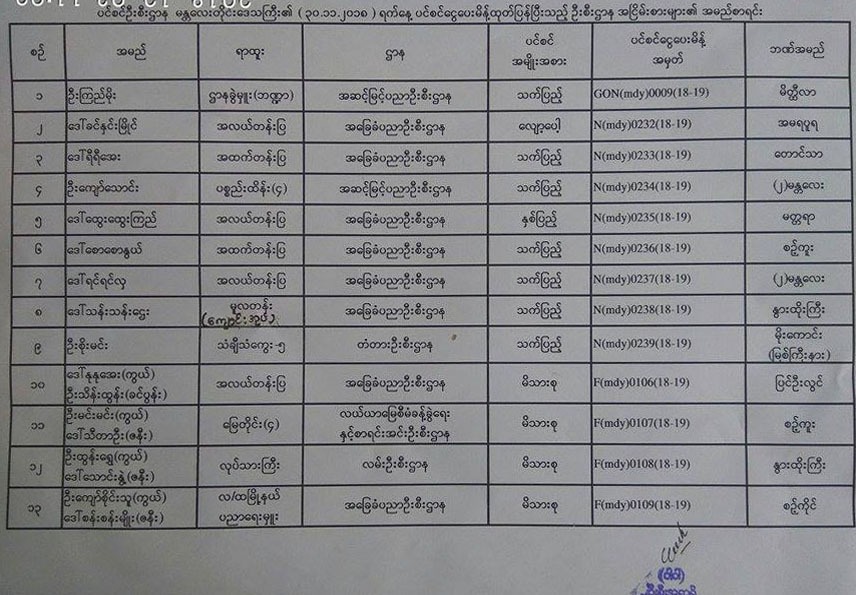 ပင်စင်ဦးစီးဌာန မန္တလေးတိုင်းဒေသကြီး၏ ( ၃၀.၁၁.၂၀၁၈ ) ရက်နေ့ ပင်စင်ငွေပေးမိန့်ထုတ်ပြန်ပြီးသည့် ဦးစီးဌာန အငြိမ်းစားများ၏ အမည်စာရင်း
စဉ် အမည် ရာထူး ဌာန ပင်စင် အမျိုးအစား ပင်စင်ငွေပေးမိန့် အမှတ် ဘဏ်အမည်
၁ ဦးကြည်မိုး ဌာနခွဲမှူး(ဘဏ္ဍာ) အဆင့်မြင့်ပညာဦးစီးဌာန သက်ပြည့် GON(mdy)0009(18-19) မိတ္ထီလာ
၂ ဒေါ်ခင်နှင်းမြိုင် အလယ်တန်းပြ အခြေခံပညာဦးစီးဌာန လျော့ပေါ့ N(mdy)0232(18-19) အမရပူရ
၃ ဒေါ်ရီရီအေး အထက်တန်းပြ အခြေခံပညာဦးစီးဌာန သက်ပြည့် N(mdy)0233(18-19) တောင်သာ
၄ ဦးကျော်သောင်း ပစ္စည်းထိန်း(၄) အဆင့်မြင့်ပညာဦးစီးဌာန သက်ပြည့် N(mdy)0234(18-19) (၂)မန္တလေး
၅ ဒေါ်ထွေးထွေးကြည် အလယ်တန်းပြ အခြေခံပညာဦးစီးဌာန နှစ်ပြည့် N(mdy)0235(18-19) မတ္တရာ
၆ ဒေါ်စောစောနွယ် အထက်တန်းပြ အခြေခံပညာဦးစီးဌာန သက်ပြည့် N(mdy)0236(18-19) စဉ့်ကူး
၇ ဒေါ်ရင်ရင်လှ အလယ်တန်းပြ အခြေခံပညာဦးစီးဌာန သက်ပြည့် N(mdy)0237(18-19) (၂)မန္တလေး
၈ ဒေါ်သန်းသန်းဌွေး မူလတန်း (ကျောင်းအုပ်) အခြေခံပညာဦးစီးဌာန သက်ပြည့် N(mdy)0238(18-19) နွားထိုးကြီး
၉ ဦးစိုးမင်း သံချီသံကွေး-၅ တံတားဦးစီးဌာန သက်ပြည့် N(mdy)0239(18-19) မိုးကောင်း (မြစ်ကြီးနား)
၁၀ ဒေါ်နုနုအေး(ကွယ်) ဦးသိန်းထွန်း(ခင်ပွန်း) အလယ်တန်းပြ အခြေခံပညာဦးစီးဌာန မိသားစု F(mdy)0106(18-19) ပြင်ဦးလွင်
၁၁ ဦးမင်းမင်း(ကွယ်) ဒေါ်သီတာဦး(ဇနီး) မြေတိုင်း(၄) လယ်ယာမြေစီမံခန့်ခွဲရေး နှင့်စာရင်းအင်းဦးစီးဌာန မိသားစု F(mdy)0107(18-19) စဉ့်ကူး
၁၂ ဦးထွန်းရွှေ(ကွယ်) ဒေါ်သောင်းနွဲ့(ဇနီး) လုပ်သားကြီး လမ်းဦးစီးဌာန မိသားစု F(mdy)0108(18-19) နွားထိုးကြီး
၁၃ ဦးကျော်စိုင်းသူ(ကွယ်) ဒေါ်စန်းစန်းမျိုး(ဇနီး) လ/ထမြို့နယ် ပညာရေးမှူး အခြေခံပညာဦးစီးဌာန မိသားစု F(mdy)0109(18-19) စဉ့်ကိုင်
(ဝါဝါ)